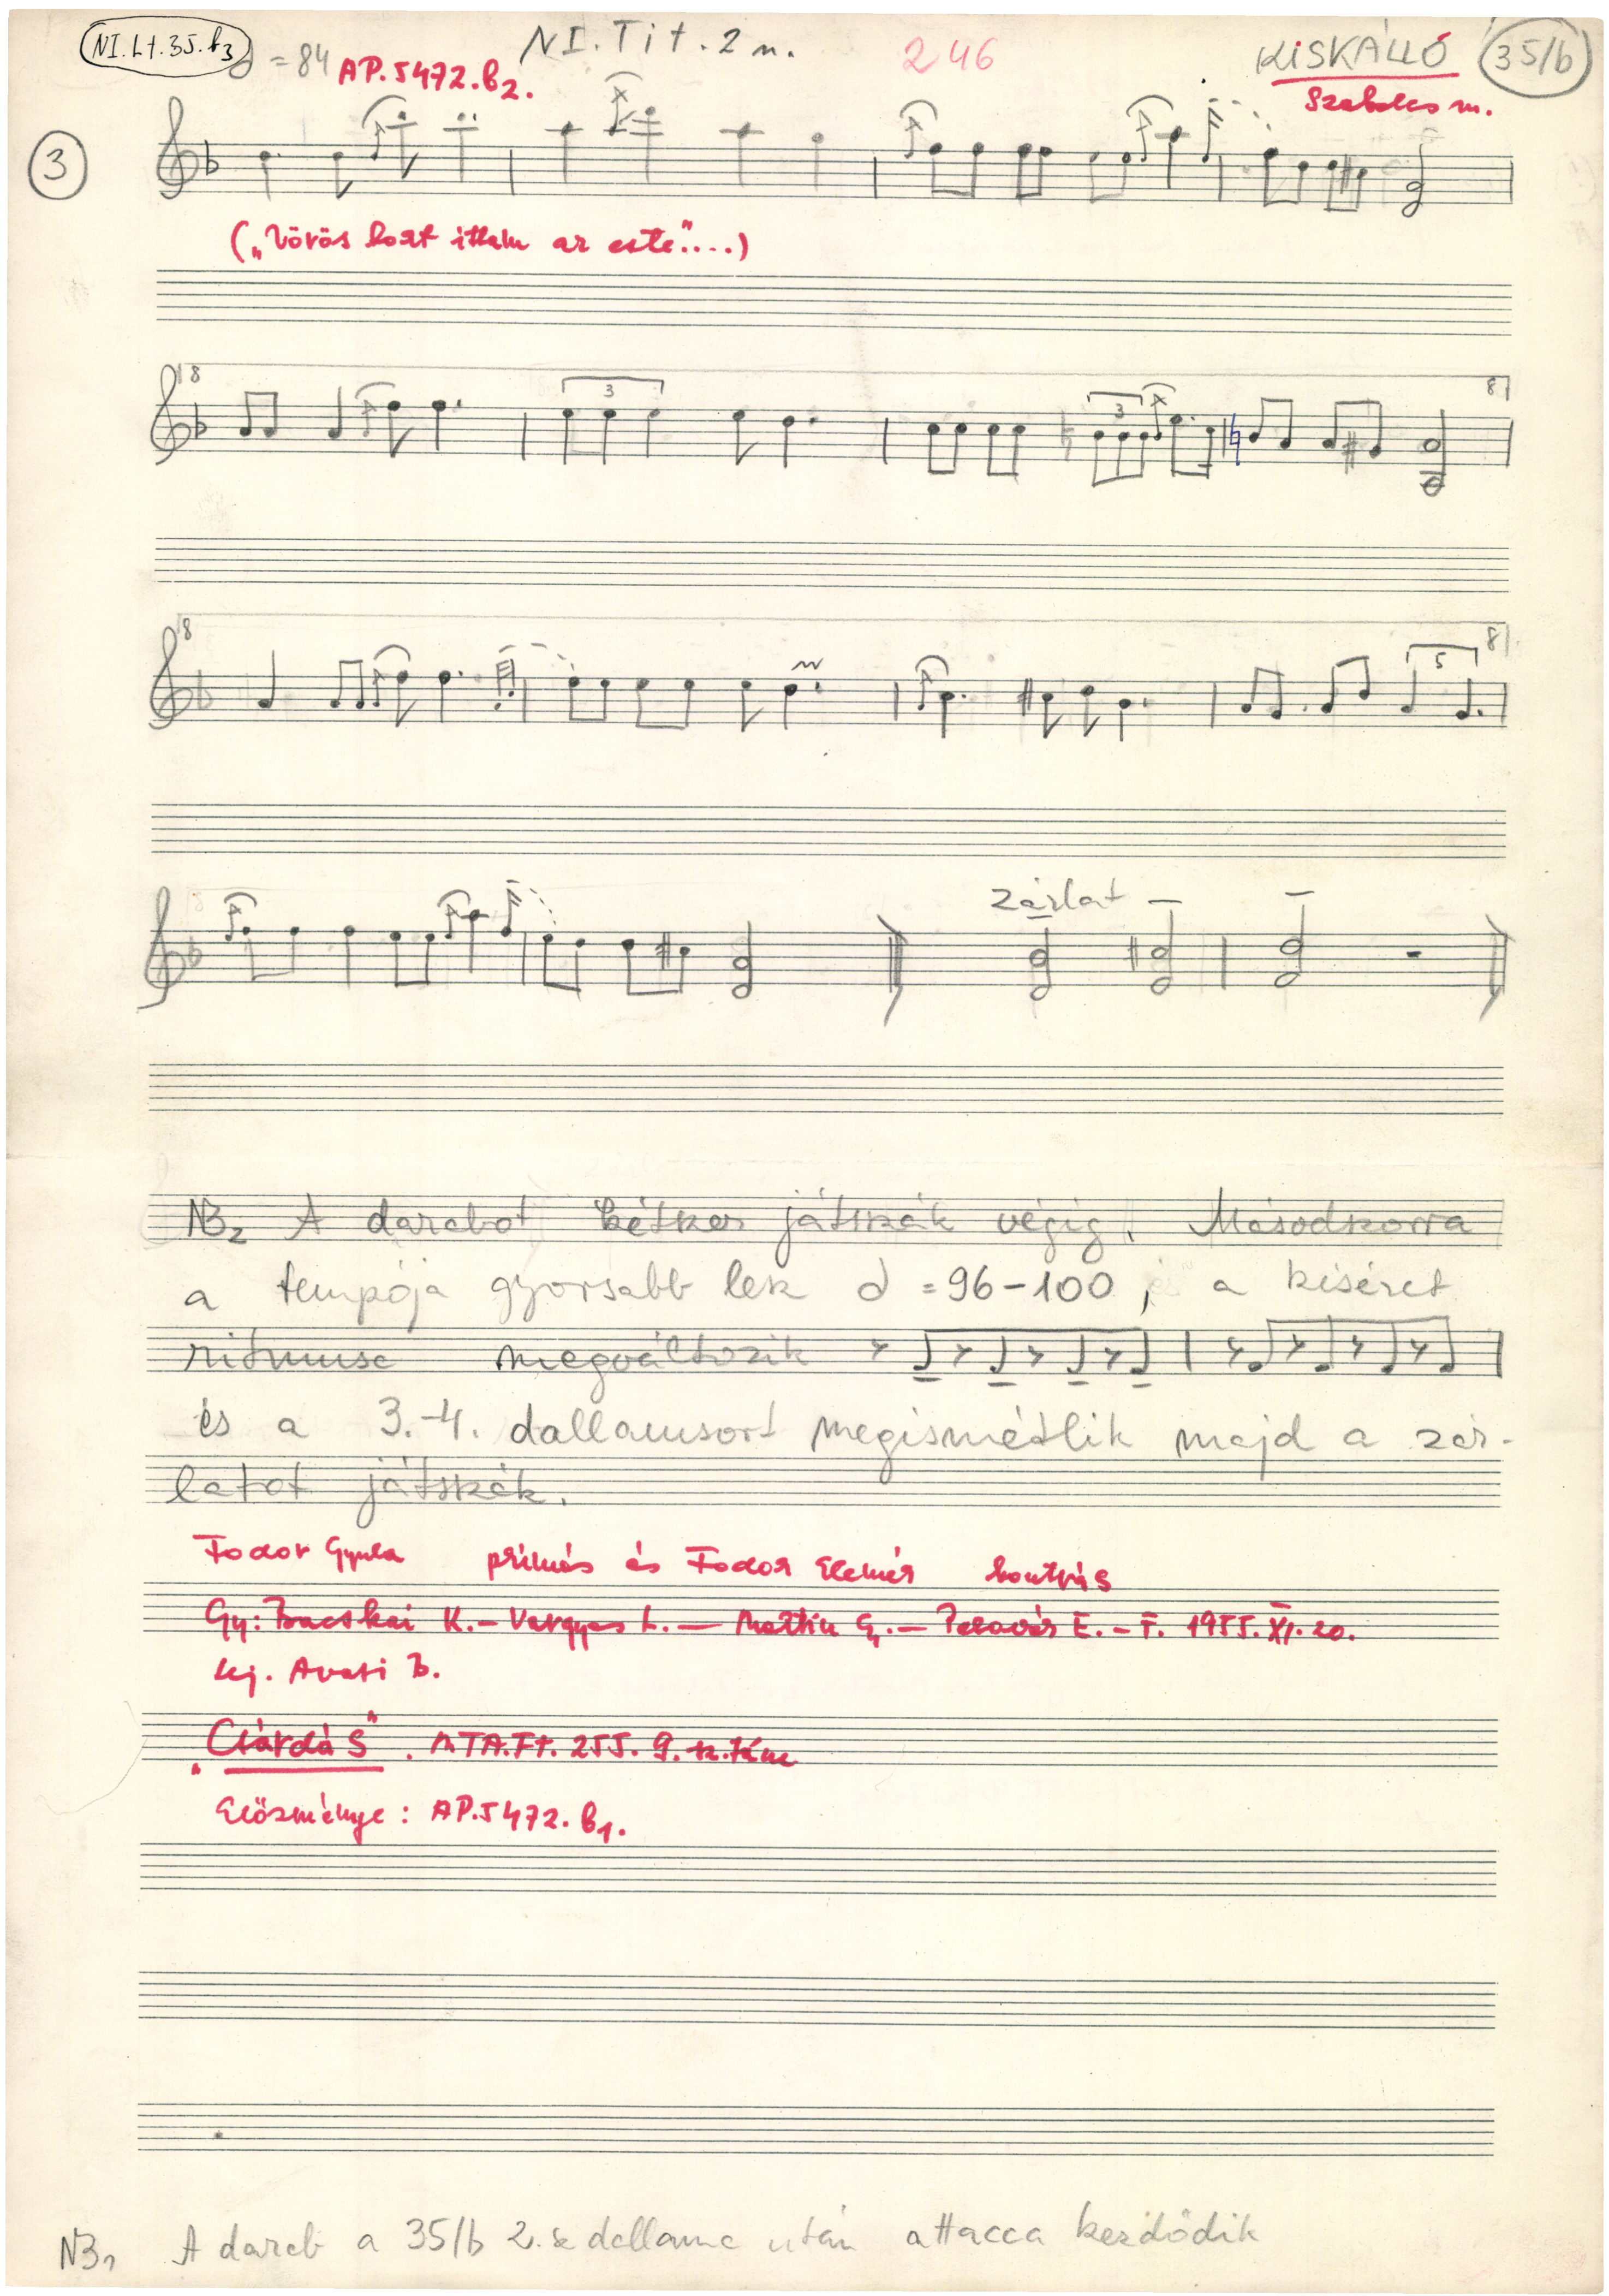 NI.Lt.35.b3
= 84
AP.5472.b2.
NI.Tit.2 m.
246
KISKÁLLÓ
35/b
Szabolcs m.
3
("Vörös bort ittam az este"....)
8
3
3
8
8
5
8
zárlat
NB2 A darabot kétszer játszák végig. Másodszorra
a tempója gyorsabb lesz = 96-100, a kiséret
ritmusa megváltozik
és a 3.-4. dallamsort megismétlik majd a zár-
latot játszák.
Fodor Gyula prímás és Fodor Elemér kontrás
Gy: Bacskai K. - Vargyas L. - Martin Gy. - Pesovár E. - F. 1955. XI. 20.
lej. Avasi B.
"Csárdás". MTA.Ft. 255. 9.
Előzménye: AP.5472.b1.
NB1 A darab a 35/b 2. dallama után attacca kezdődik